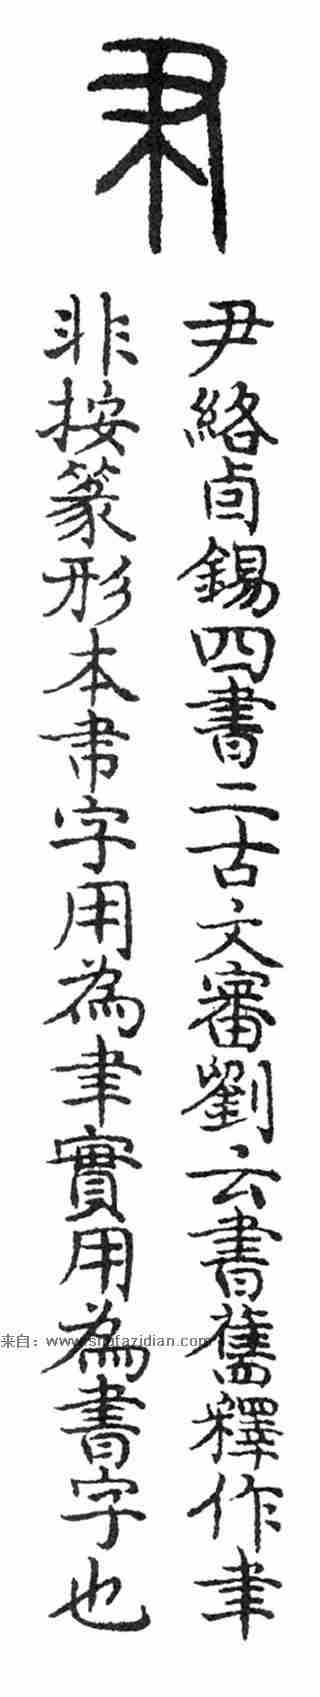 尹絡卣錫四書二古文審劉云書舊釋作聿
非按篆形本帇字用為聿實用為書字也
来自：www.shufazidian.com